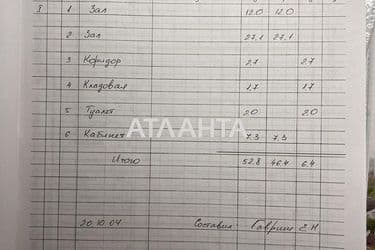 I 1 Зал 12.0 12.0
2 Зал 27,1 27,1
3 Коридор 2.7 2.7
4 Кладовая 1.7 1.7
5 Туалет 2.0 2.0
6 Кабинет 7.3 7.3
АТЛАНТА
Итого 52.8 46.4 6.4
20.10.04 Составил